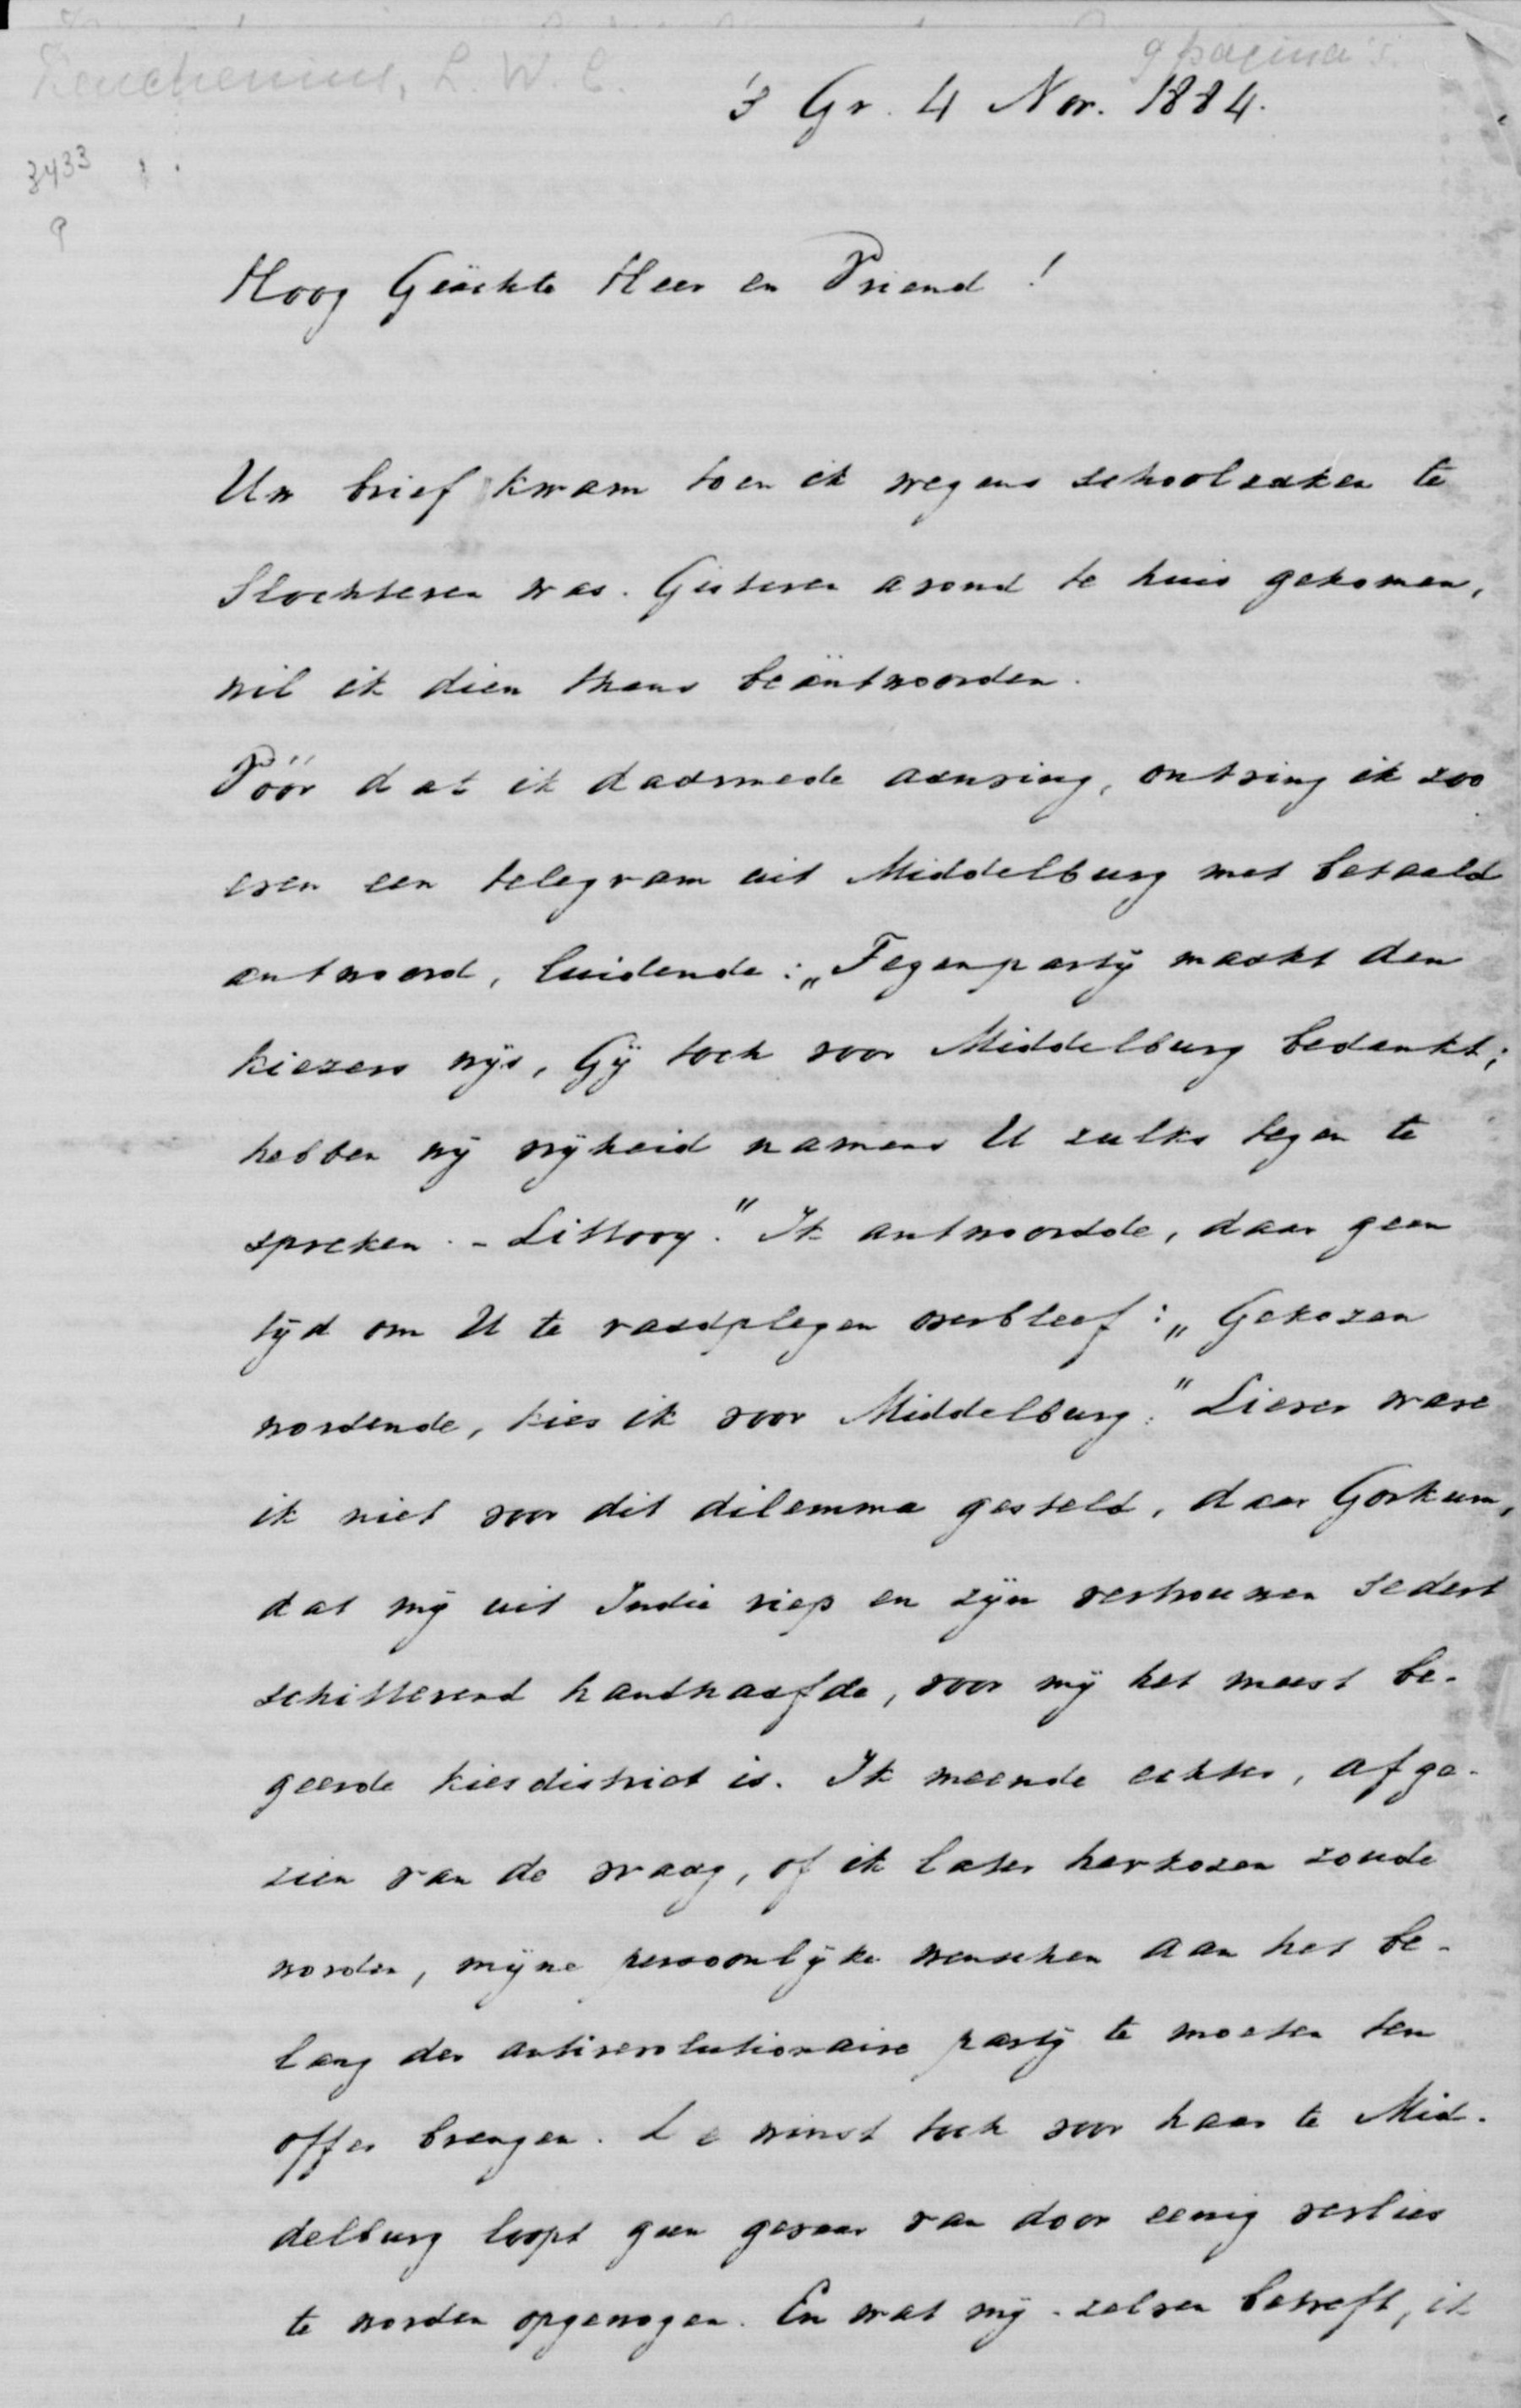 Keuchenius, L. W. C.
9 pagina's.
's Gr. 4 Nov. 1884.
3433
9
Hoog Geächte Heer en Vriend!
Uw brief kwam toen ik wegens schoolzaken te
Slochteren was. Gisteren avond te huis gekomen,
wil ik dien thans beäntwoorden.
Vóór dat ik daarmede aanving, ontving ik zoo
even een telegram uit Middelburg met betaald
antwoord, luidende: „Tegenparty maakt den
kiezers wijs, Gij toch voor Middelburg bedankt;
hebben wij vrijheid namens U zulks tegen te
spreken. – Littooy." Ik antwoordde, daar geen
tijd om U te raadplegen overbleef: „Gekozen
wordende, kies ik voor Middelburg." Liever ware
ik niet voor dit dilemma gesteld, daar Gorkum,
dat mij uit Indië riep en zijn vertrouwen sedert
schitterend handhaafde, voor mij het meest be-
geerde kiesdistrict is. Ik meende echter, afge-
zien van de vraag, of ik later herkozen zoude
worden, mijne persoonlijke wenschen aan het be-
lang der antirevolutionaire partij te moeten ten
offer brengen. De winst toch voor haar te Mid-
delburg loopt geen gevaar van door eenig verlies
te worden opgewogen. En wat mij-zelven betreft, ik